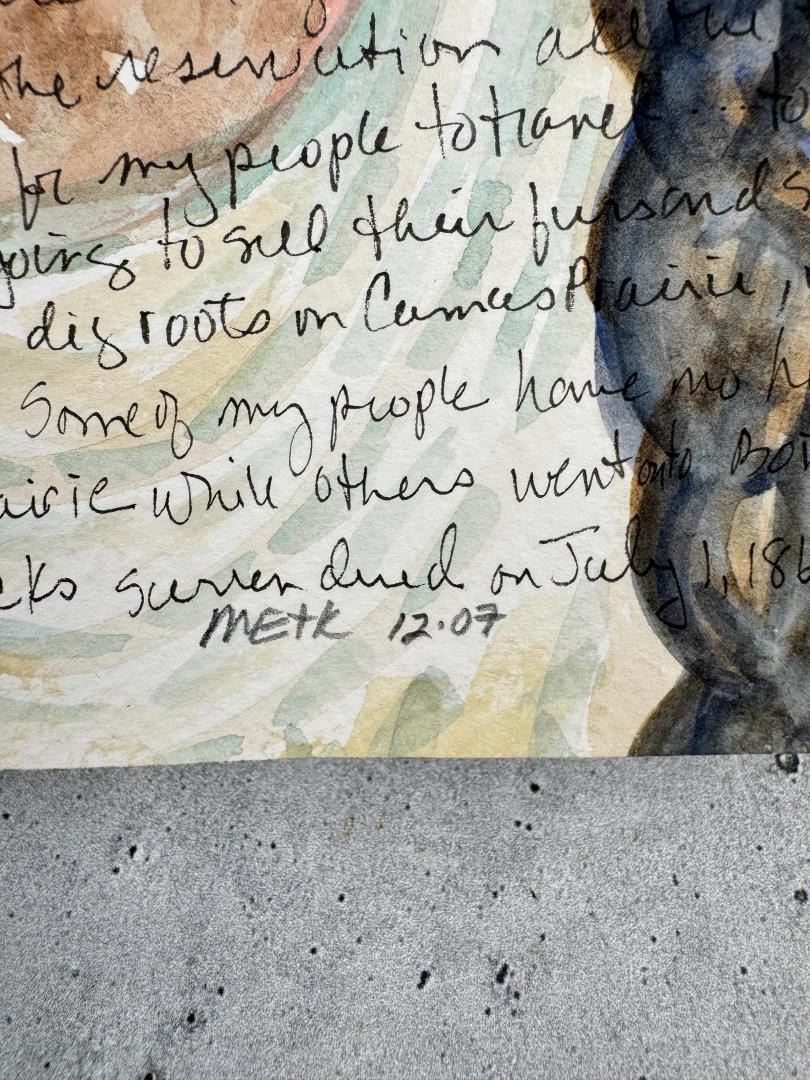 the reservation all the
for my people to travel ... to
going to sell their furs and s
dig roots on Camas Prairie,
Some of my people have no h
airie while others went onto Boi
cks surrendered on July 1, 186
METK 12.07